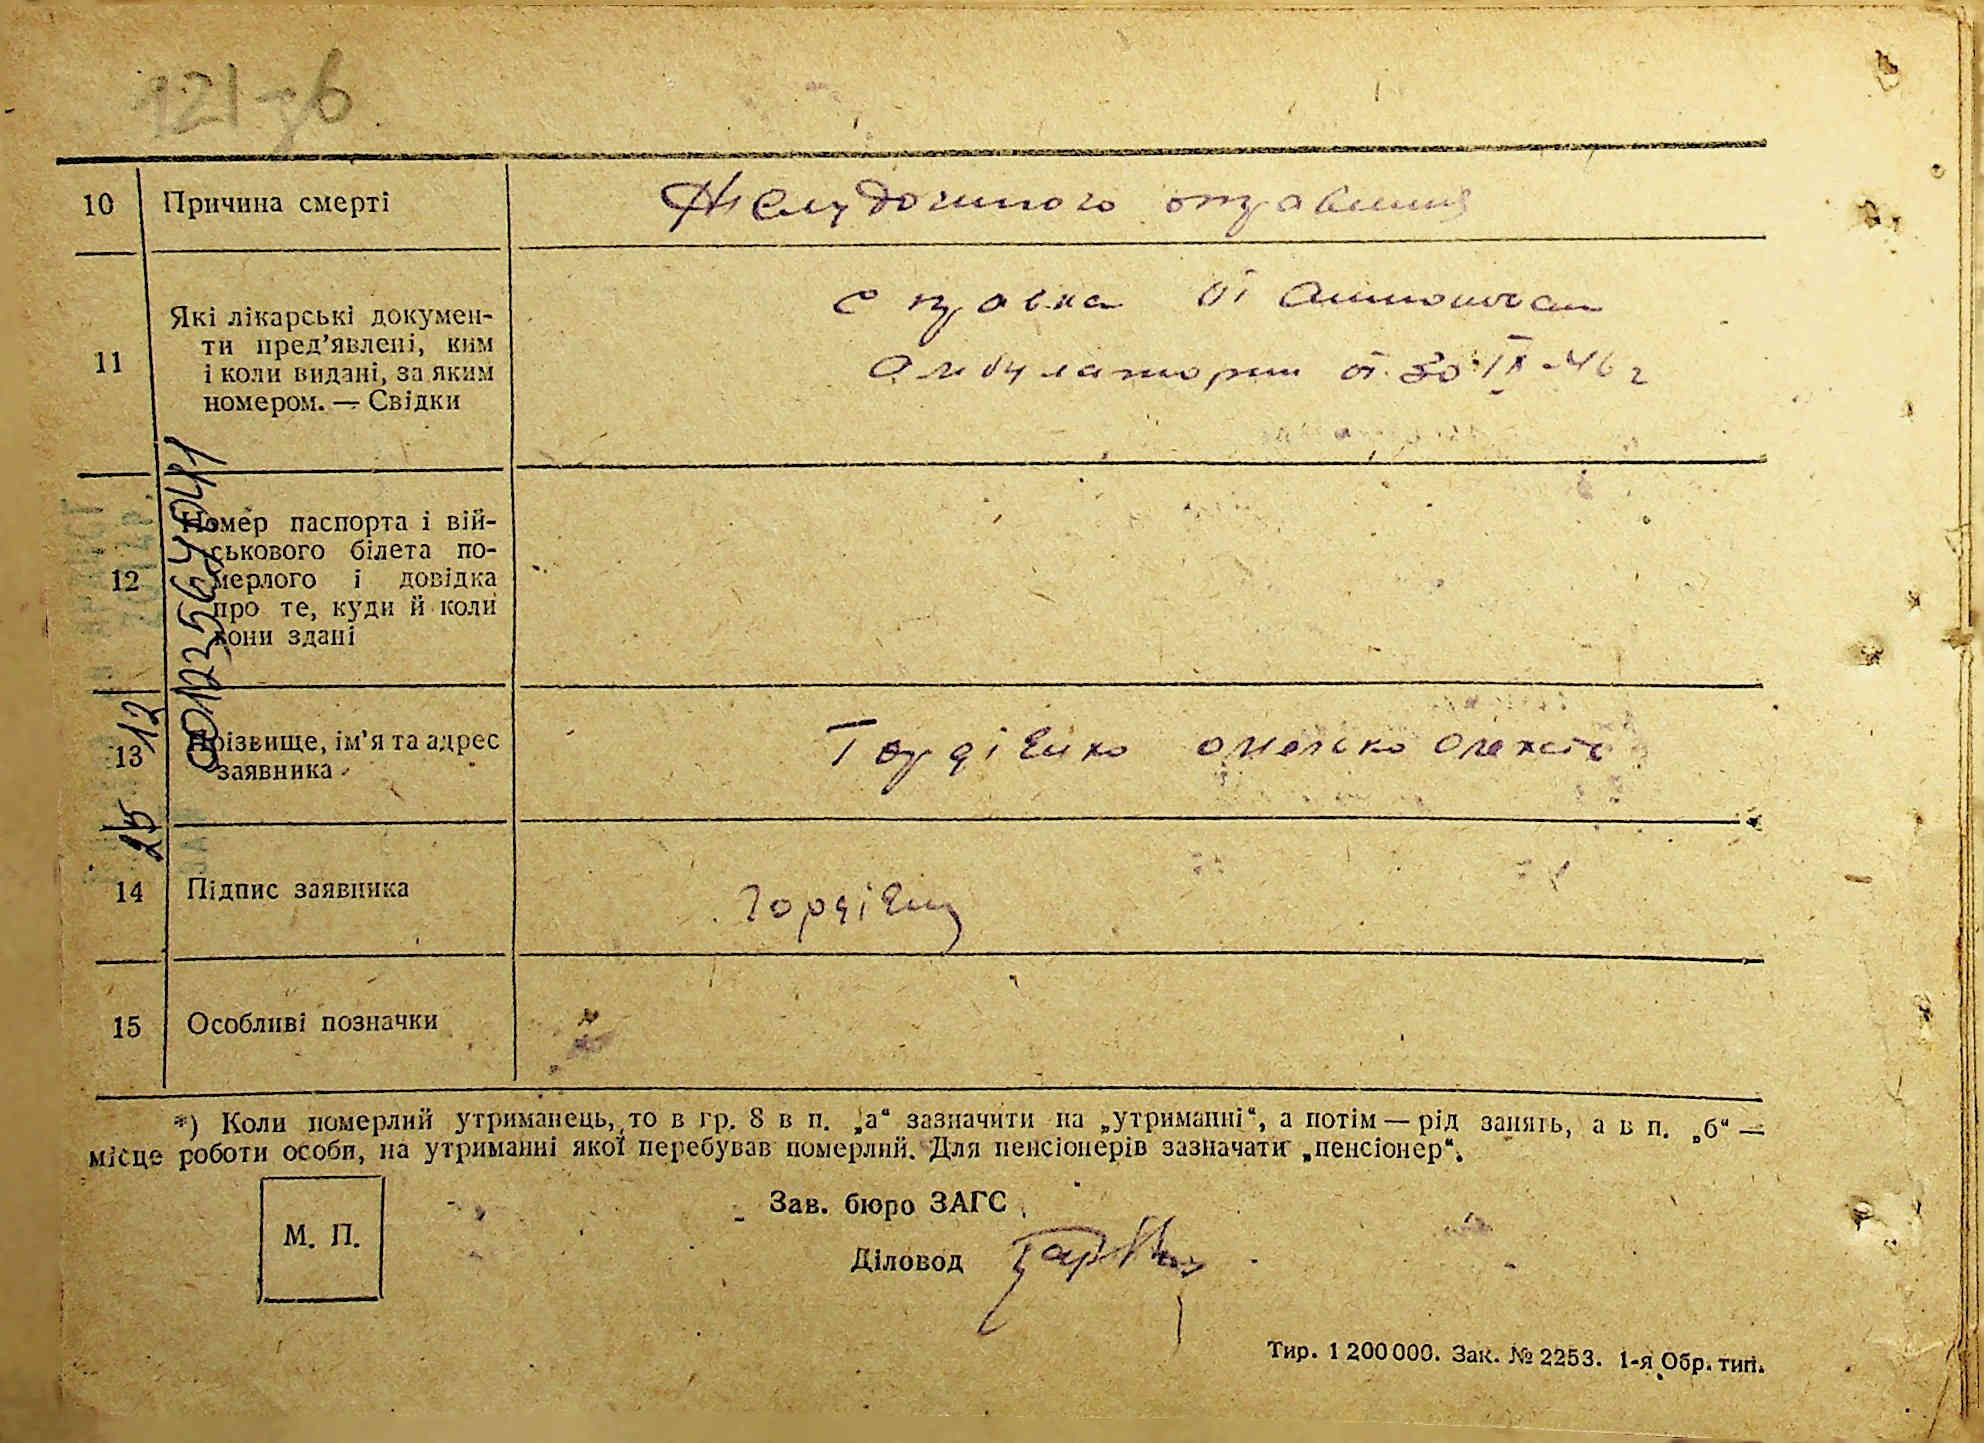 121
10 Причина смерті
Желудочного отравления
11 Які лікарські докумен-
ти пред’явлені, ким
і коли видані, за яким
номером. — Свідки
справка от
амбулатории от 30 IX-46 г
12 Номер паспорта і вій-
ськового білета по-
мерлого і довідка
про те, куди й коли
вони здані
13 Прізвище, ім’я та адрес
заявника
Гордієнко
14 Підпис заявника
15 Особливі позначки
*) Коли померлий утриманець, то в гр. 8 в п. „а“ зазначити на „утриманні“, а потім — рід занять, а в п. „б“ —
місце роботи особи, на утриманні якої перебував померлий. Для пенсіонерів зазначати „пенсіонер“.
М. П.
Зав. бюро ЗАГС
Діловод
Тир. 1 200 000. Зак. № 2253. 1-я Обр. тип.
25 12